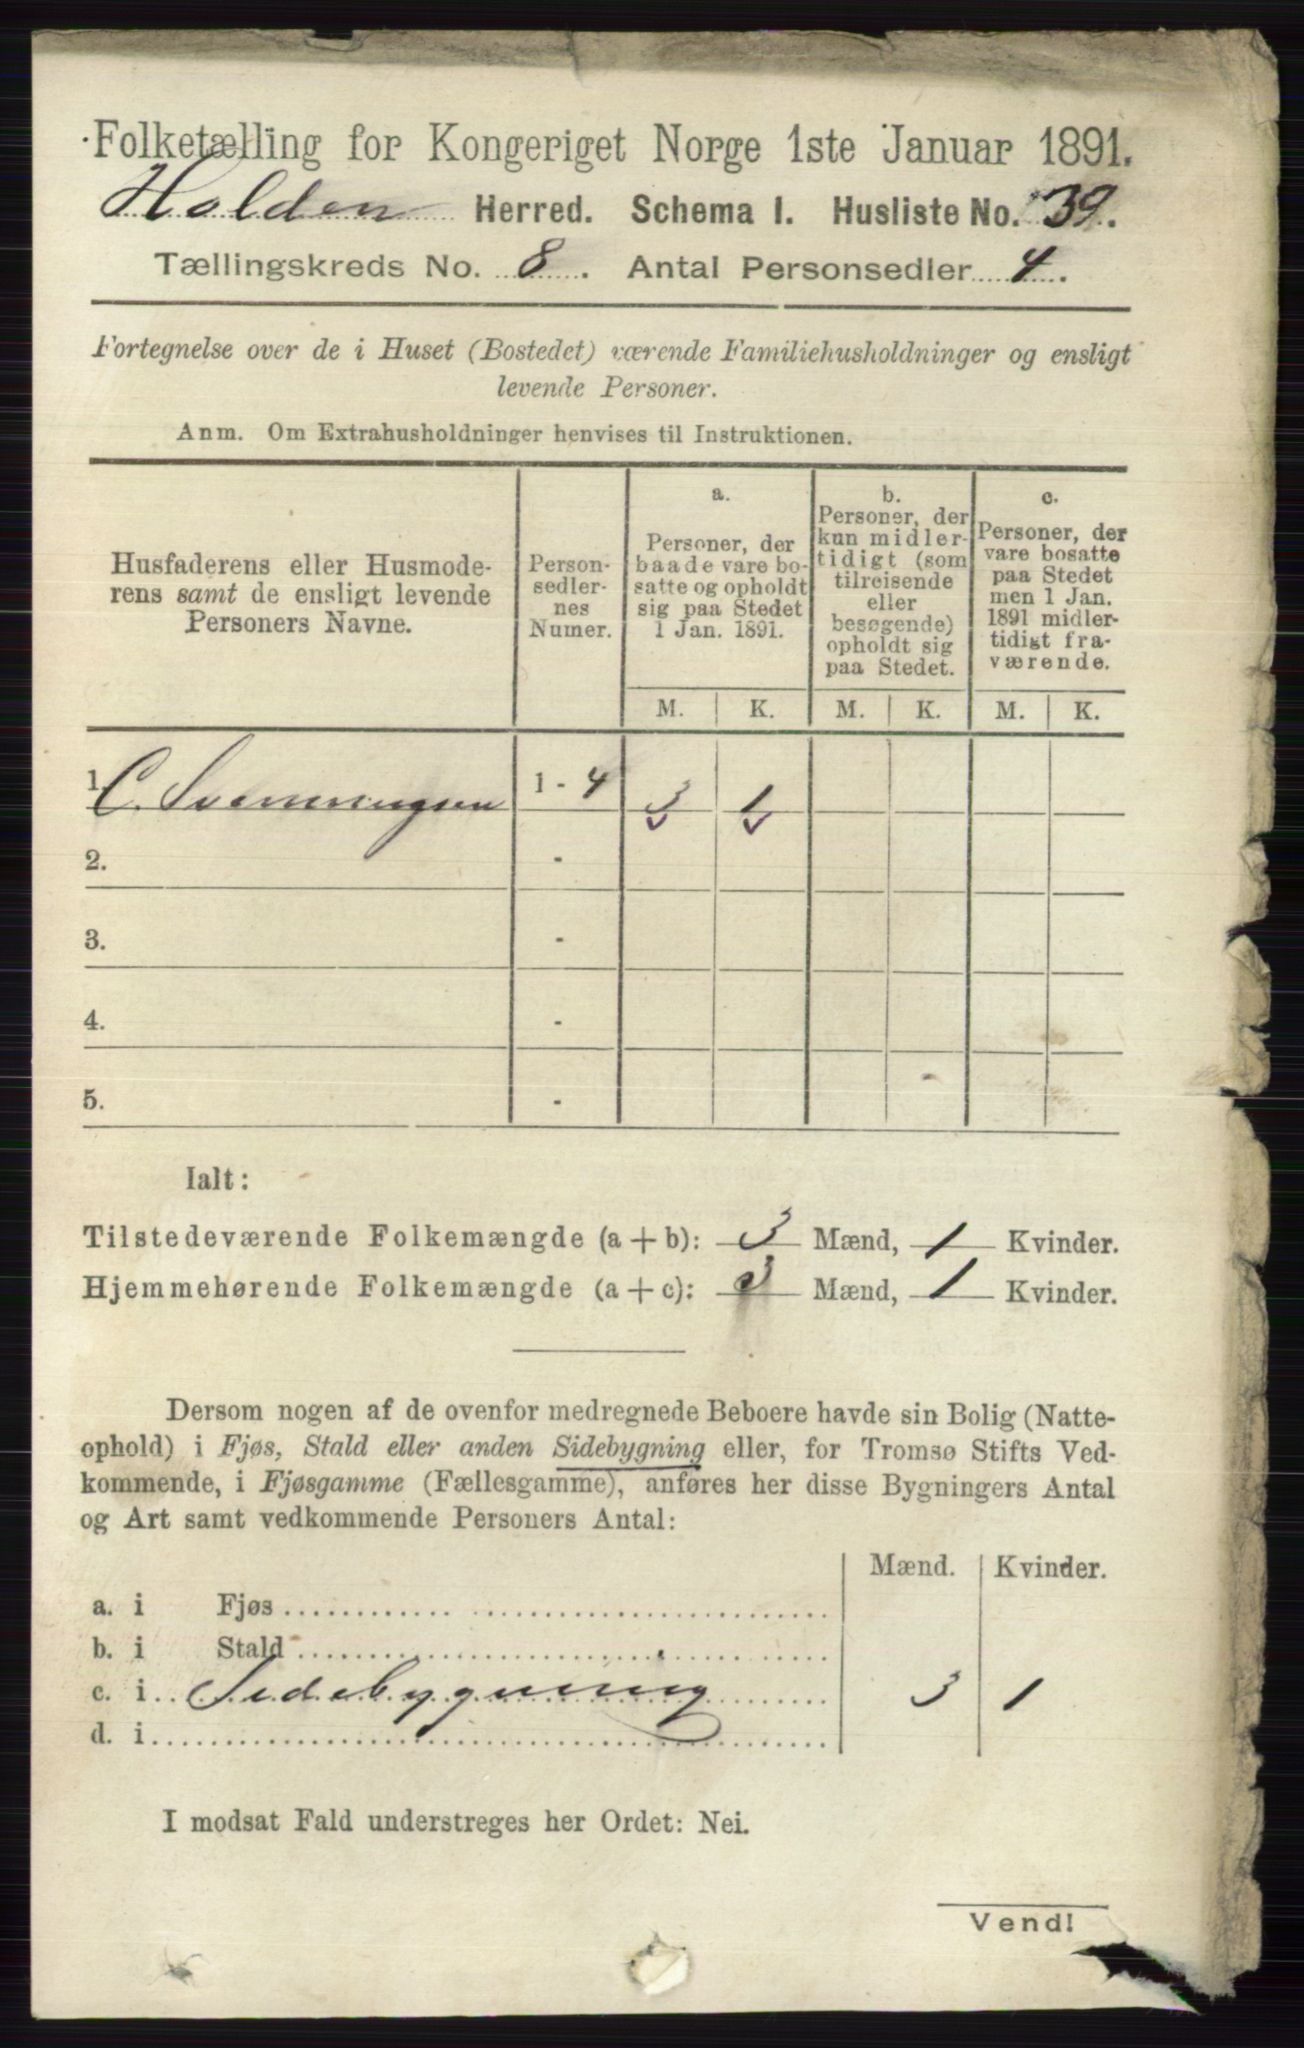 Folketælling for Kongeriget Norge 1ste Januar 1891.
Holden Herred. Schema I. Husliste No. 39.
Tællingskreds No. 8. Antal Personsedler 4.
Fortegnelse over de i Huset (Bostedet) værende Familiehusholdninger og ensligt
levende Personer.
Anm. Om Extrahusholdninger henvises til Instruktionen.
Husfaderens eller Husmode-
rens samt de ensligt levende
Personers Navne.
Person-
sedler-
nes
Numer.
a.
Personer, der
baade vare bo-
satte og opholdt
sig paa Stedet
1 Jan. 1891.
b.
Personer, der
kun midler-
tidigt (som
tilreisende
eller
besøgende)
opholdt sig
paa Stedet.
c.
Personer, der
vare bosatte
paa Stedet
men 1 Jan.
1891 midler-
tidigt fra-
værende.
M. K. M. K. M. K.
1. C. Svenningsen 1 - 4 3 1
2. -
3. -
4. -
5. -
Ialt:
Tilstedeværende Folkemængde (a + b): 3 Mænd, 1 Kvinder.
Hjemmehørende Folkemængde (a + c): 3 Mænd, 1 Kvinder.
Dersom nogen af de ovenfor medregnede Beboere havde sin Bolig (Natte-
ophold) i Fjøs, Stald eller anden Sidebygning eller, for Tromsø Stifts Ved-
kommende, i Fjøsgamme (Fællesgamme), anføres her disse Bygningers Antal
og Art samt vedkommende Personers Antal:
Mænd. Kvinder.
a. i Fjøs
b. i Stald
c. i Sidebygning 3 1
d. i
I modsat Fald understreges her Ordet: Nei.
Vend!